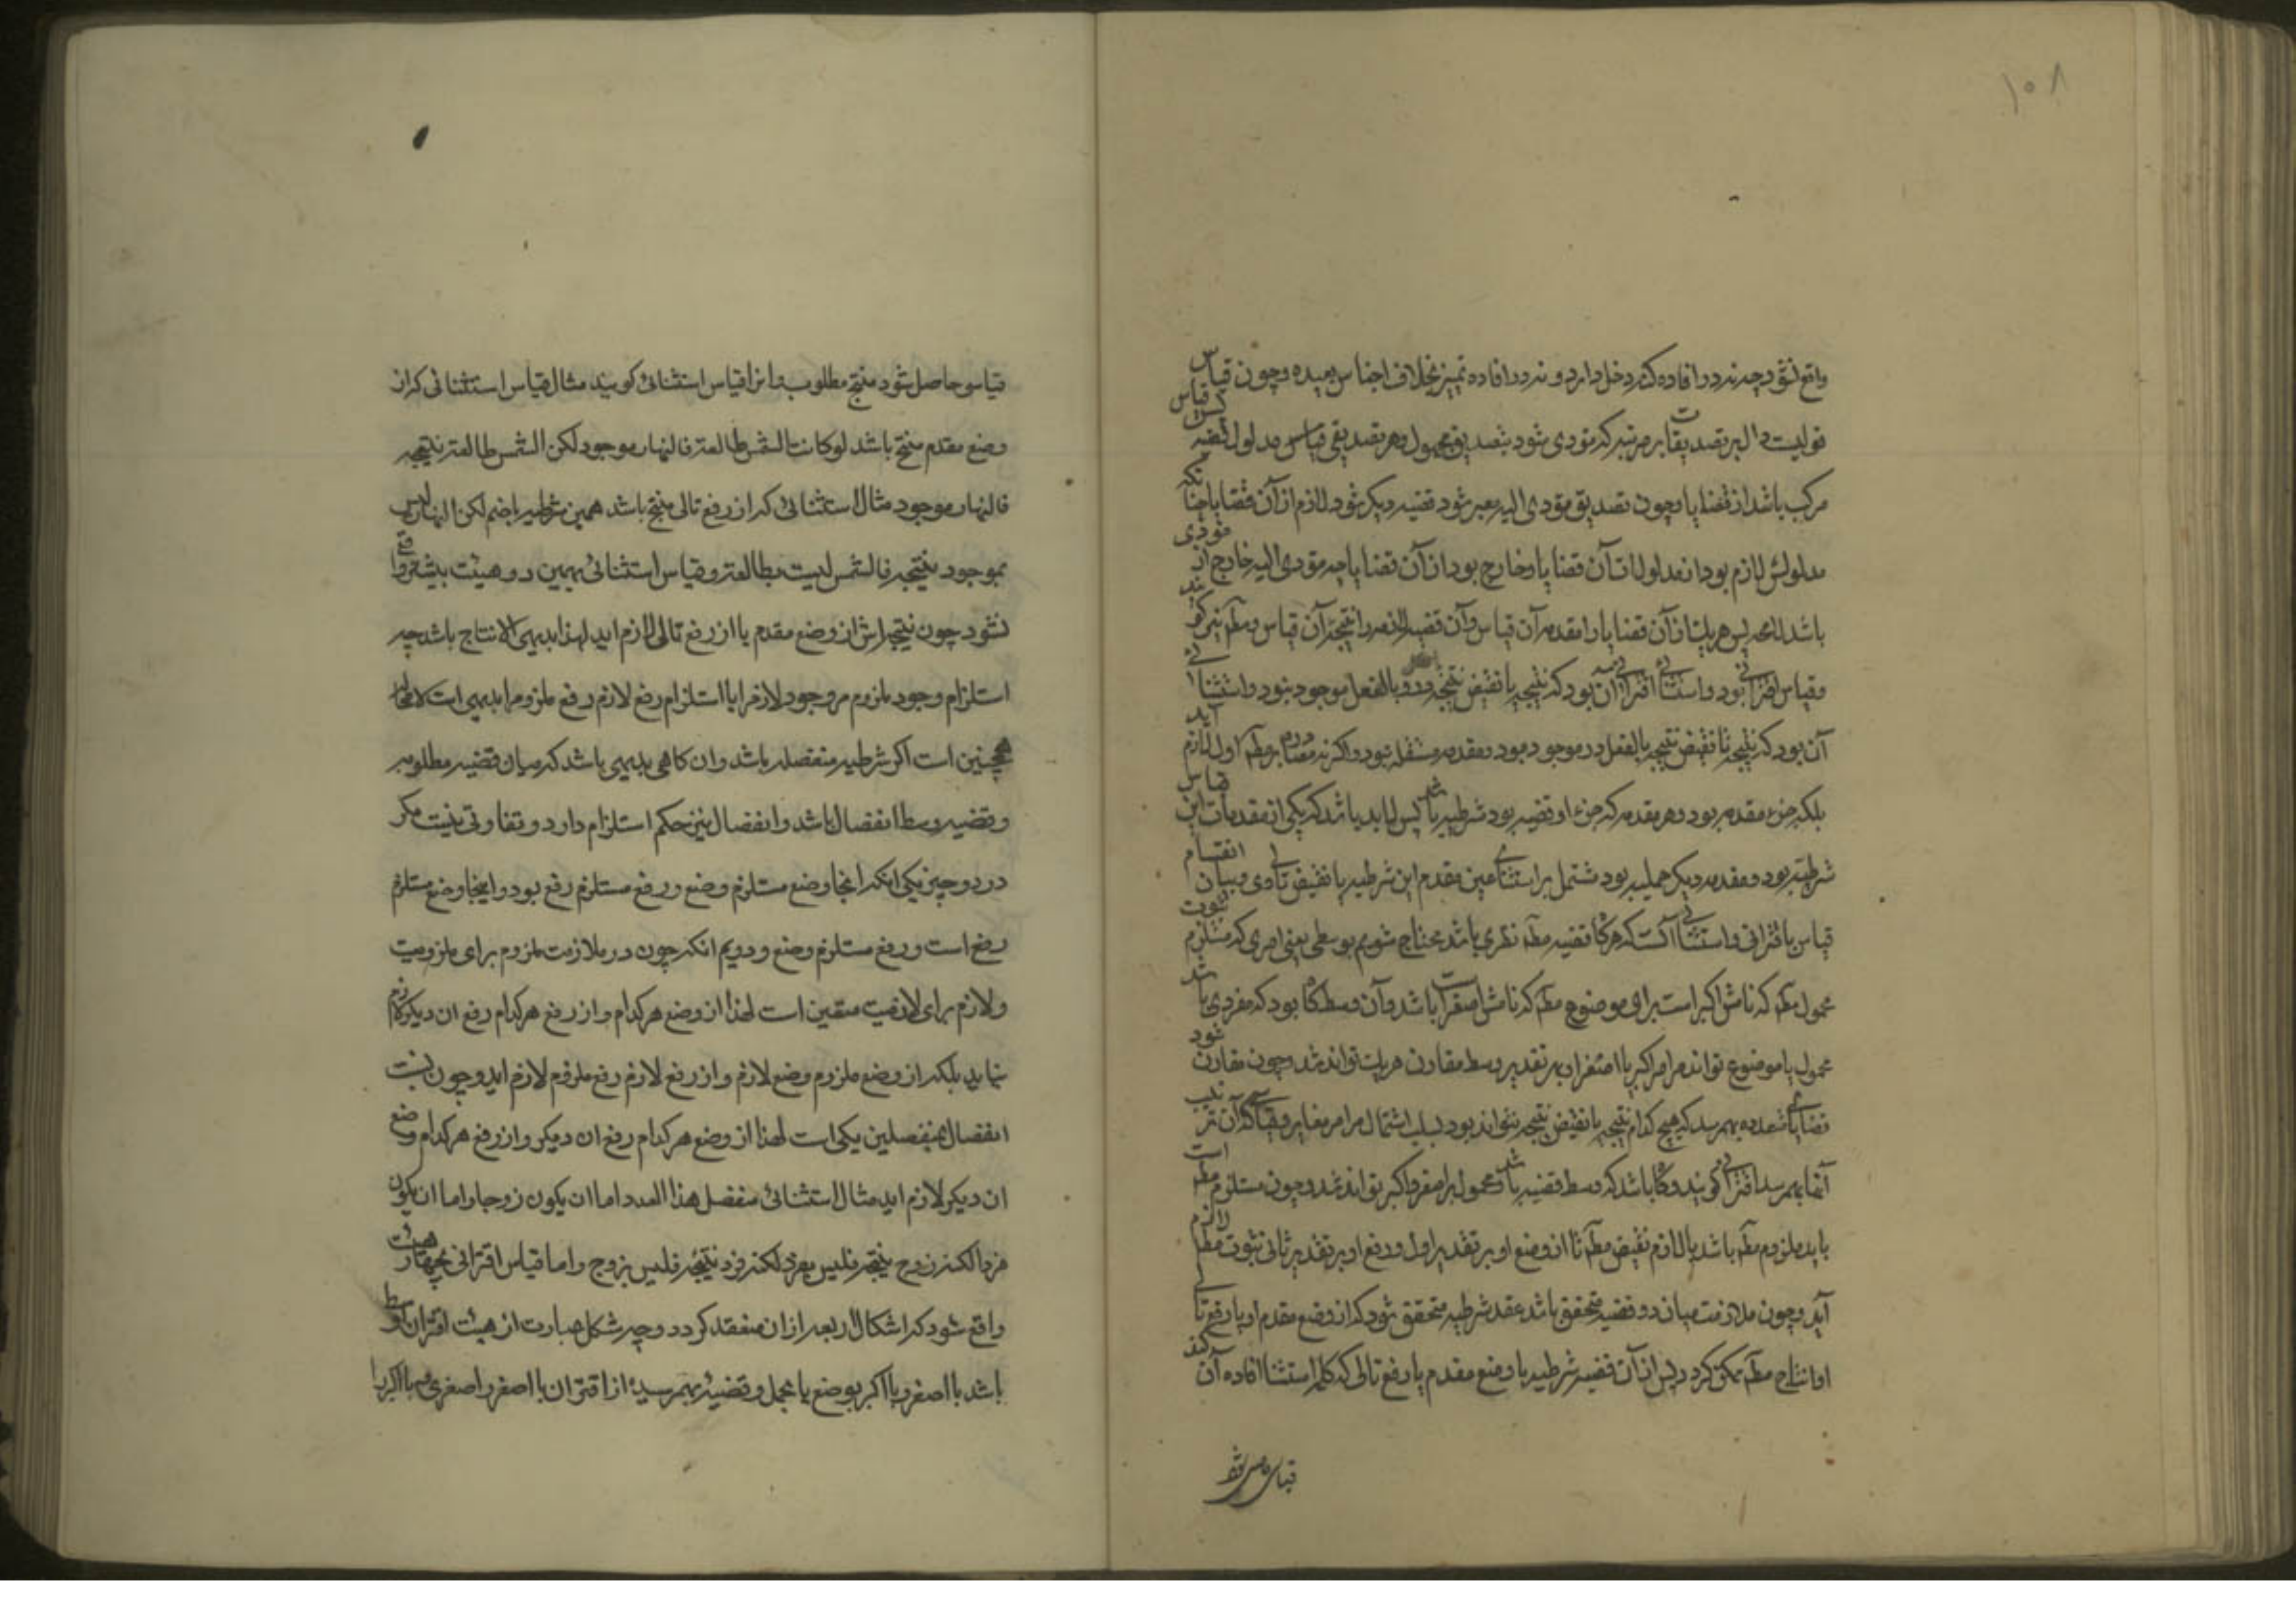 ۱۰۸
واقع نشود چه نه در افاده کنه دخل دارد و نه در افاده تمیز بخلاف اجناس بعیده و چون قیاس
قولیست دال بر تصدیقات مرتبه که مؤدی شود بتصدیق مجهول و هر تصدیقی قیاس مدلول قضیه
مرکب باشد از قضایا و چون تصدیق مؤدی الیه معبر شود قضیه دیگر شود لازم از آن قضایا چنانکه
مدلولش لازم بود از مدلولات آن قضایا و خارج بود از آن قضایا چه مؤدی الیه خارج از مؤدی
باشد لا محه پس هر یک از آن قضایا را مقدمه آن قیاس و آن قضیه لازمه را نتیجه آن قیاس و مطه نیز گویند
و قیاس اقترانی بود و استثنائی اقترانی آن بود که نتیجه یا نقیض نتیجه درو بالفعل موجود نبود و استثنائی
آن بود که نتیجه یا نقیض نتیجه بالفعل درو موجود بود و مقدمه مستقله نبود و اگر نه مصادره بر مطه اول لازم آید
بلکه جزء مقدمه بود و هر مقدمه که جزء او قضیه بود شرطیه باشد پس لابد باشد که یکی از مقدمات این قیاس
شرطیه بود و مقدمه دیگر حملیه بود مشتمل بر استثنای عین مقدم این شرطیه یا نقیض تالی وی و بیان انقسام
قیاس باقترانی و استثنائی آنست که هرگاه قضیه مطه نظری باشد محتاج شویم بوسطی یعنی امری که مستلزم ثبوت
محمول مطه که نامش اکبر است برای موضوع مطه که نامش اصغر است باشد و آن وسط گاه بود که مفردی باشد
محمول یا موضوع تواند مر اکبر یا اصغر را بهر تقدیر وسط مقارن هر یک تواند شد و چون مقارن شود
قضایای متعدده بهمرسد که هیچ کدام نتیجه یا نقیض نتیجه نتواند بود بسبب اشتمال مر امر مغایر و قیاسی که از آن ترکیب
آنها بهمرسد اقترانی گویند و گاه باشد که وسط قضیه باشد و محمول بر اصغر و اکبر نتواند شد و چون مستلزم مطه است
باید ملزوم مطه باشد یا لازم نقیض مطه تا از وضع او بر تقدیر اول و رفع او بر تقدیر ثانی ثبوت مطه لازم
آید و چون ملازمت میان دو قضیه متحقق باشد عقد شرطیه متحقق شود که از وضع مقدم او یا رفع تالی
او انتاج مطه ممکن گردد پس از آن قضیه شرطیه با وضع مقدم یا رفع تالی که کلمه استثنا افاده آن کند
قیاس حاصل شود
قیاس حاصل شود منتج مطلوب و این را قیاس استثنائی گویند مثال قیاس استثنائی که از
وضع مقدم منتج باشد لو کانت الشمس طالعة فالنهار موجود لکن الشمس طالعة نتیجه
فالنهار موجود مثال استثنائی که از رفع تالی منتج باشد همین شرطیه باضم لکن النهار لیس
بموجود نتیجه فالشمس لیست بطالعة و قیاس استثنائی بهمین دو هیئت بیشتر واقع
نشود چون نتیجه اش از وضع مقدم یا از رفع تالی لازم اید لهذا بدیهی الانتاج باشد چه
استلزام وجود ملزوم مر وجود لازم را یا استلزام رفع لازم رفع ملزوم را بدیهی است لا محاله
همچنین است اگر شرطیه منفصله باشد و ان گاهی بدیهی باشد که میان قضیه مطلوبه
و قضیه وسط انفصال باشد و انفصال نیز حکم استلزام دارد و تفاوتی نیست مگر
در دو چیز یکی انکه انجا وضع مستلزم وضع و رفع مستلزم رفع بود و اینجا وضع مستلزم
رفع است و رفع مستلزم وضع و دویم انکه چون در ملازمت ملزوم برای ملزومیت
و لازم برای لازمیت متعین است لهذا از وضع هرکدام و از رفع هرکدام رفع ان دیگر لازم
نیاید بلکه از وضع ملزوم وضع لازم و از رفع لازم رفع ملزوم لازم اید و چون نسبت
انفصال بمنفصلین یکی است لهذا از وضع هرکدام رفع ان دیگر و از رفع هرکدام وضع
ان دیگر لازم اید مثال استثنائی منفصل هذا العدد اما ان یکون زوجا و اما ان یکون
فردا لکنه زوج نتیجه فلیس بفرد لکنه فرد نتیجه فلیس بزوج و اما قیاس اقترانی بچهار هیئت
واقع شود که اشکال اربعه از ان منعقد گردد و چه شکل عبارت از هیئت اقتران اوسط
باشد با اصغر و با اکبر بوضع یا بحمل و قضیه بهمرسیده از اقتران با اصغر را صغری و با اکبر را